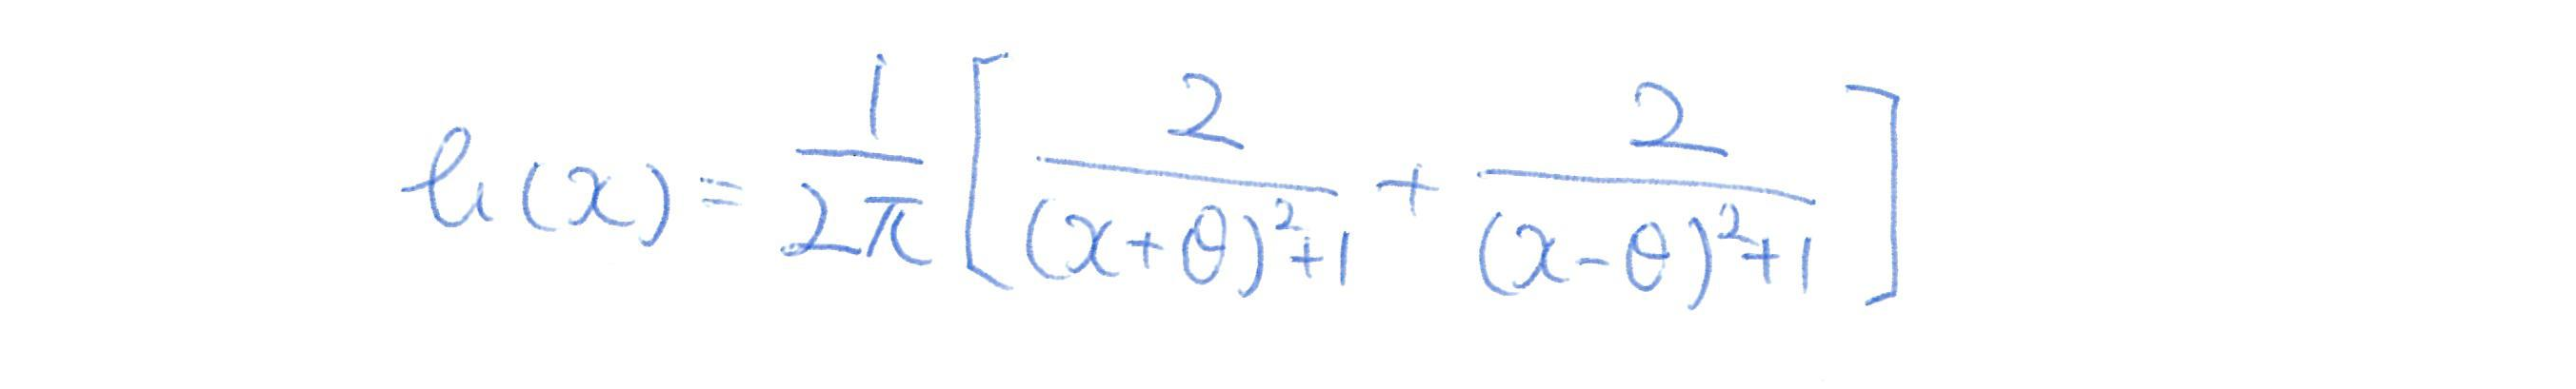 h(x) = \frac{1}{2\pi} \left[ \frac{2}{(x+\theta)^2+1} + \frac{2}{(x-\theta)^2+1} \right]